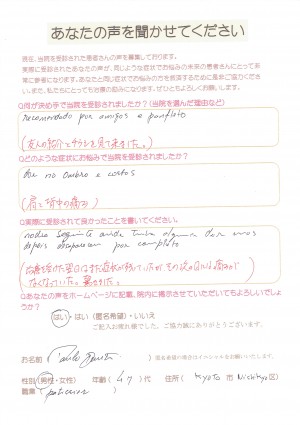 あなたの声を聞かせてください
現在、当院を受診された患者さんの声を募集しております。
実際に受診されたあなたの声が、同じような症状でお悩みの未来の患者さんにとって非
常に参考になります。あなたと同じ症状でお悩みの方を救済するために是非ご協力くださ
い。また、私たちにとっても治療の励みになります。ぜひともよろしくお願いします。
Q何が決め手で当院を受診されましたか？（当院を選んだ理由など）
recomendado por amigos e panfleto
（友人の紹介とチラシを見て来ました。）
Qどのような症状にお悩みで当院を受診されましたか？
dor no ombro e costas
（肩と背中の痛み）
Q実際に受診されて良かったことを書いてください。
no dia seguinte ainda tinha alguma dor mas
depois desapareceu por completo
（治療を受けた翌日はまだ症状が残っていたが その次の日には痛みが
なくなっていた。驚きました。）
Qあなたの声をホームページに記載、院内に掲示させていただいてもよろしいでしょ
うか？
はい・はい（匿名希望）・いいえ
ご記入お疲れ様でした。ご協力誠にありがとうございます。
お名前 Paulo
匿名希望の場合はイニシャルをお願いいたします。
性別（男性・女性） 年齢（47）代 住所（Kyoto 市 Nishikyo区）
職業（